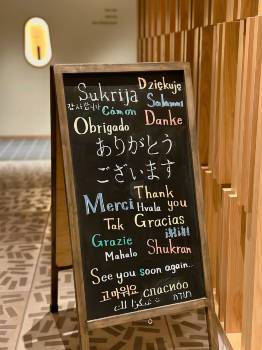 Sukrija Dziękuję
감사합니다 Salamat
Cảm ơn
Obrigado Danke
ありがとう
ございます
Merci Thank you
Hvala
Tak Gracias
Grazie 谢谢!
Mahalo Shukran
See you soon again...
고마워요 Спасибо
شكرا لك תודה